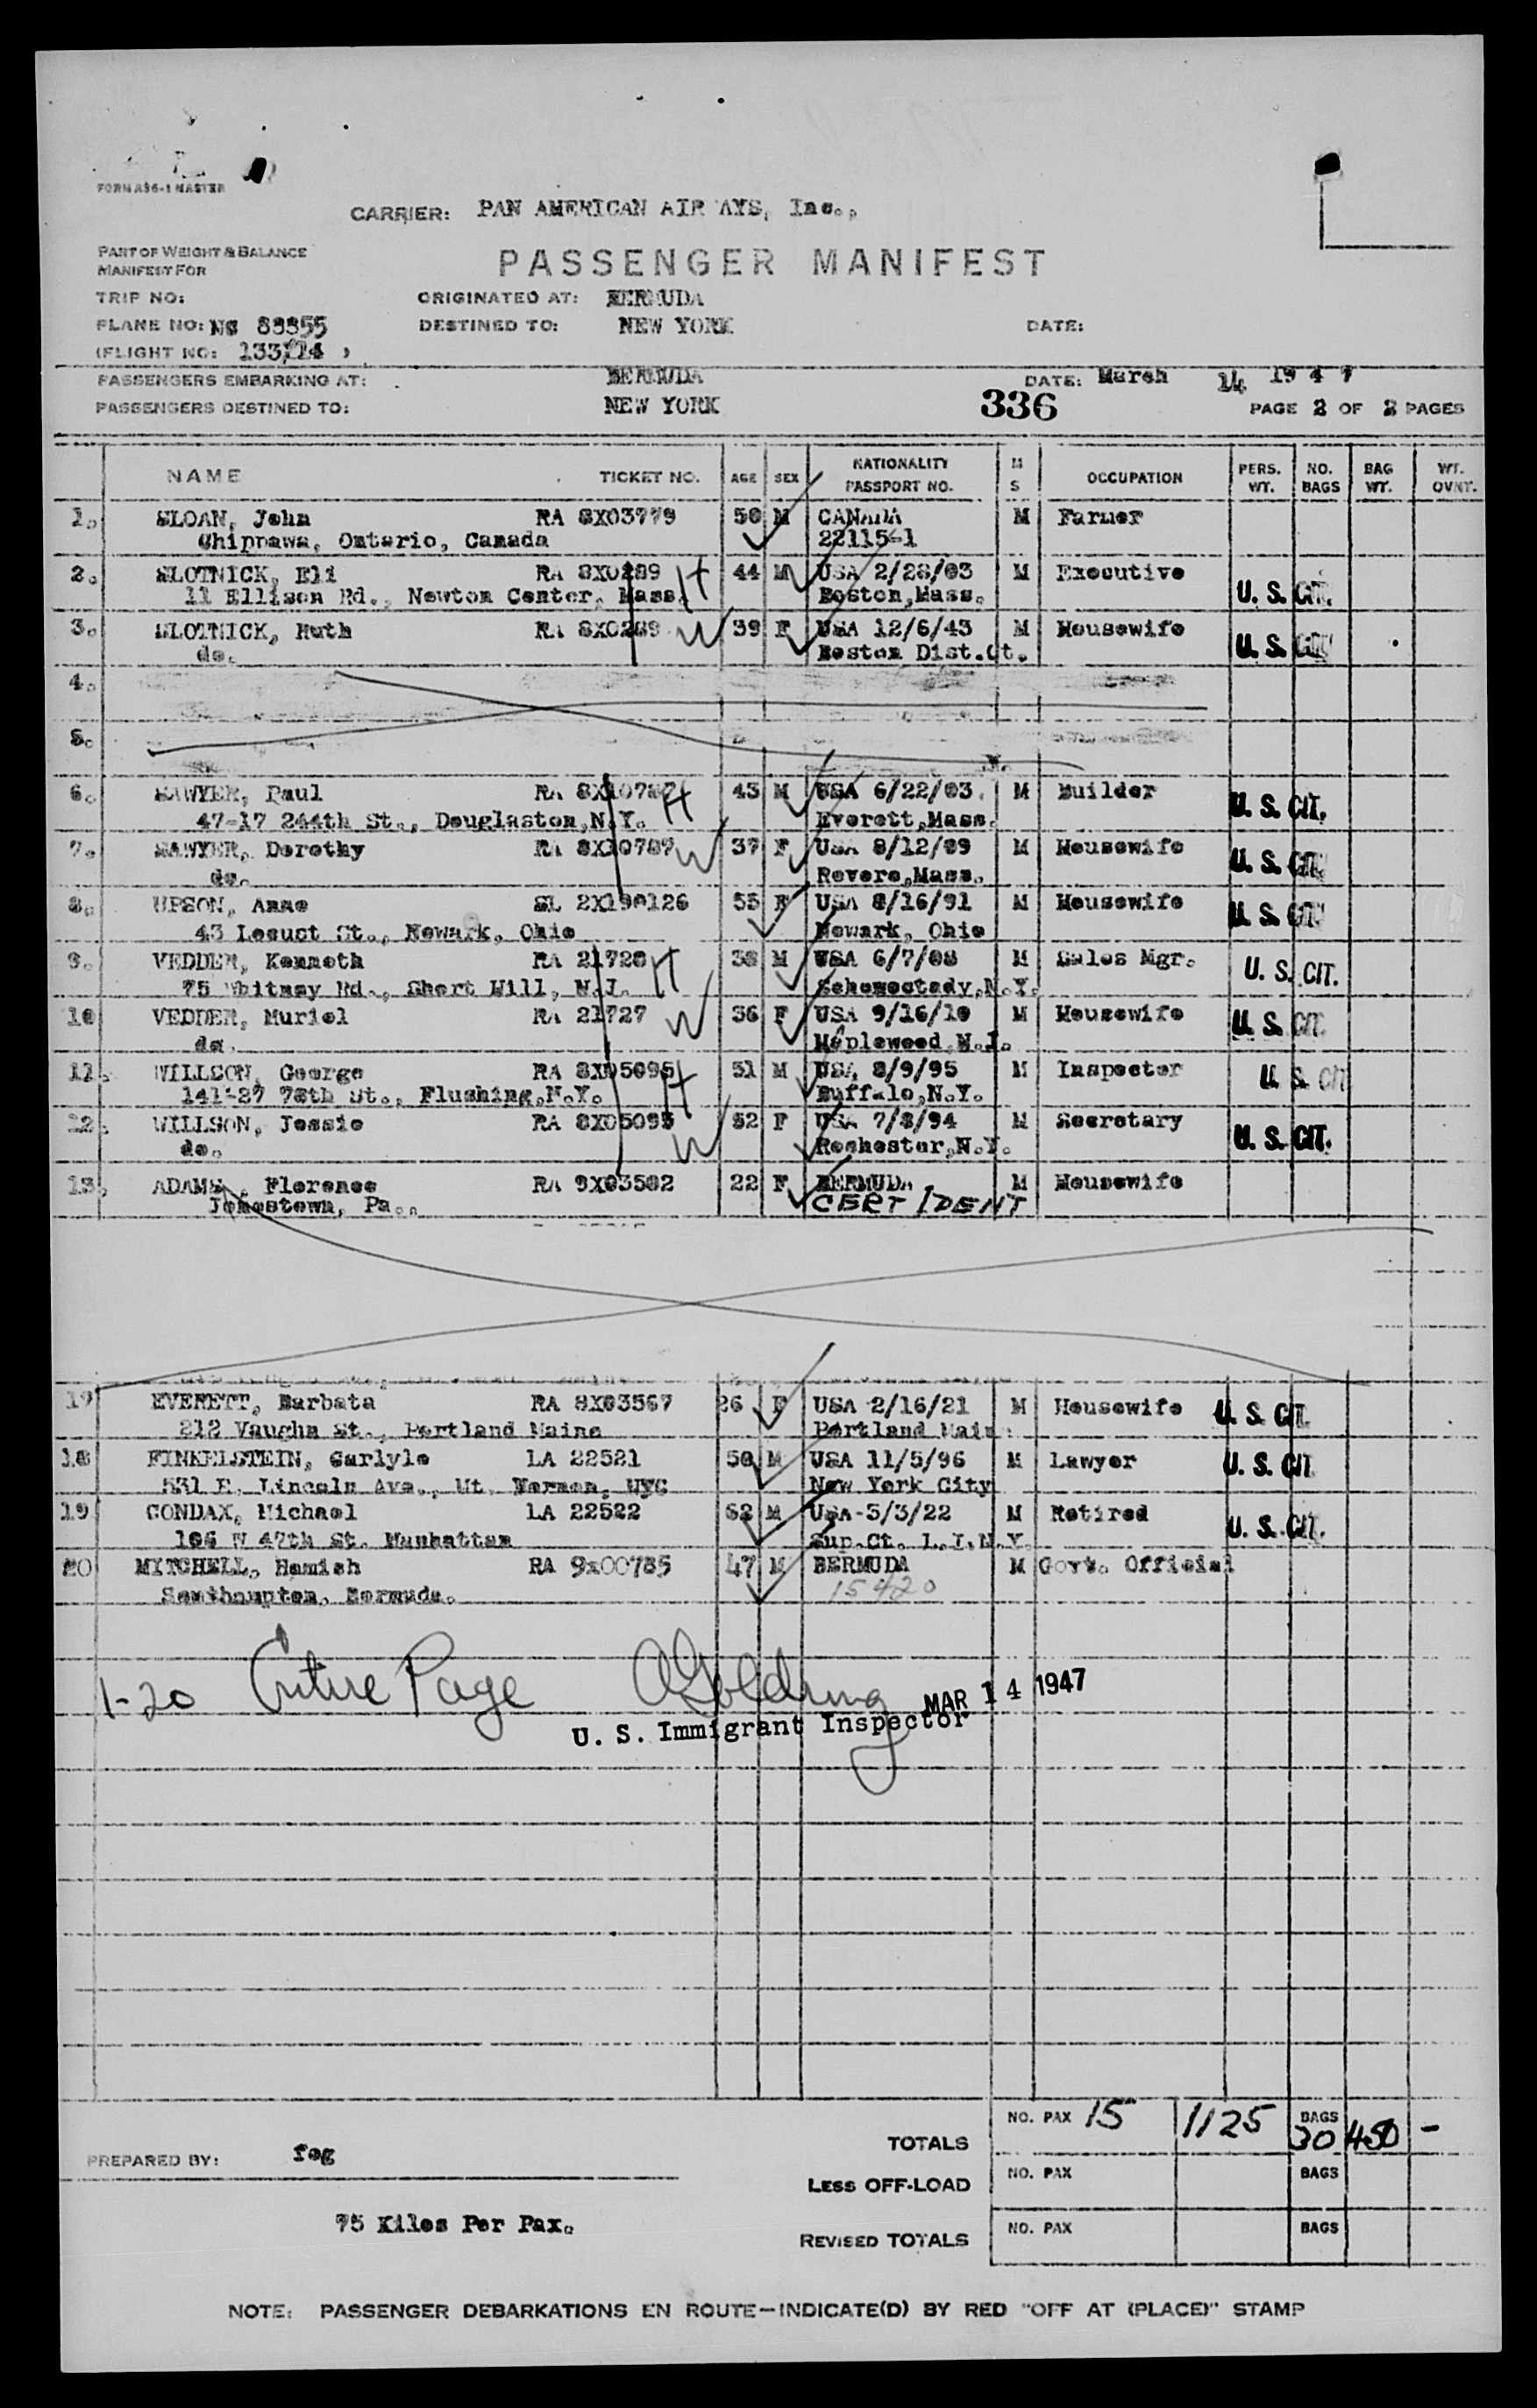 FORM A36-1 MASTER
CARRIER: PAN AMERICAN AIR AYS, Inc.,
PART OF WEIGHT & BALANCE
MANIFEST FOR
PASSENGER MANIFEST
TRIP NO: ORIGINATED AT: BERMUDA
PLANE NO: NC 88855 DESTINED TO: NEW YORK DATE:
(FLIGHT NO: 133/14 )
PASSENGERS EMBARKING AT: BERMUDA DATE: March 14 1947
PASSENGERS DESTINED TO: NEW YORK 336 PAGE 2 OF 2 PAGES
NAME TICKET NO. AGE SEX NATIONALITY PASSPORT NO. M S OCCUPATION PERS. WT. NO. BAGS BAG WT. WT. OVNT.
1. SLOAN, John RA 8X03779 50 M CANADA M Farmer
Chippawa, Ontario, Canada 22115-1
2. SLOTNICK, Eli RA 8X0289 H 44 M USA 2/28/03 M Executive U. S. CIT.
11 Ellison Rd., Newton Center, Mass. Boston,Mass.
3. SLOTNICK, Ruth RA 8X0289 W 39 F USA 12/6/43 M Housewife U. S. CIT
do. Boston Dist.Ct.
4.
5.
6. SAWYER, Paul RA 8X10787 H 43 M USA 6/22/03 M Builder U. S. CIT.
47-17 244th St., Douglaston,N.Y. Everett,Mass.
7. SAWYER, Dorothy RA 8X10787 W 37 F USA 8/12/09 M Housewife U. S. CIT
do. Revere,Mass.
8. UPSON, Anne SL 2X190126 55 F USA 8/16/91 M Housewife U. S. CIT
43 Locust St., Newark, Ohio Newark, Ohio
9. VEDDER, Kenneth RA 21728 H 38 M USA 6/7/08 M Sales Mgr. U. S. CIT.
75 Whitney Rd., Short Hill, N.J. Schenectady,N.Y.
10 VEDDER, Muriel RA 21727 W 36 F USA 9/16/10 M Housewife U. S. CIT
do. Maplewood,N.J.
11. WILLSON, George RA 8X05095 H 51 M USA 8/9/95 M Inspector U. S. CIT
141-27 78th St., Flushing,N.Y. Buffalo,N.Y.
12. WILLSON, Jessie RA 8X05095 W 52 F USA 7/8/94 M Secretary U. S. CIT.
do. Rochester,N.Y.
13. ADAMS, Florence RA 9X03502 22 F BERMUDA M Housewife
Johnstown, Pa., CERT IDENT
19 EVERETT, Barbata RA 8X03567 26 F USA 2/16/21 M Housewife U. S. CIT
212 Vaughn St., Portland Maine Portland Main
18 FINKELSTEIN, Carlyle LA 22521 50 M USA 11/5/96 M Lawyer U. S. CIT
531 E. Lincoln Ave., Mt. Vernon, NYC New York City
19 CONDAX, Michael LA 22522 62 M USA-5/3/22 M Retired U. S. CIT.
166 W 47th St. Manhattan Sup.Ct. L.I.N.Y.
20 MITCHELL, Hamish RA 9x00785 47 M BERMUDA M Govt. Official
Southampton, Bermuda. 15420
1-20 Entire Page AGoldring MAR 14 1947
U. S. Immigrant Inspector
TOTALS NO. PAX 15 1125 BAGS 30 450 -
PREPARED BY: feg
LESS OFF-LOAD NO. PAX BAGS
75 Kilos Per Pax.
REVISED TOTALS NO. PAX BAGS
NOTE: PASSENGER DEBARKATIONS EN ROUTE—INDICATE(D) BY RED "OFF AT (PLACE)" STAMP